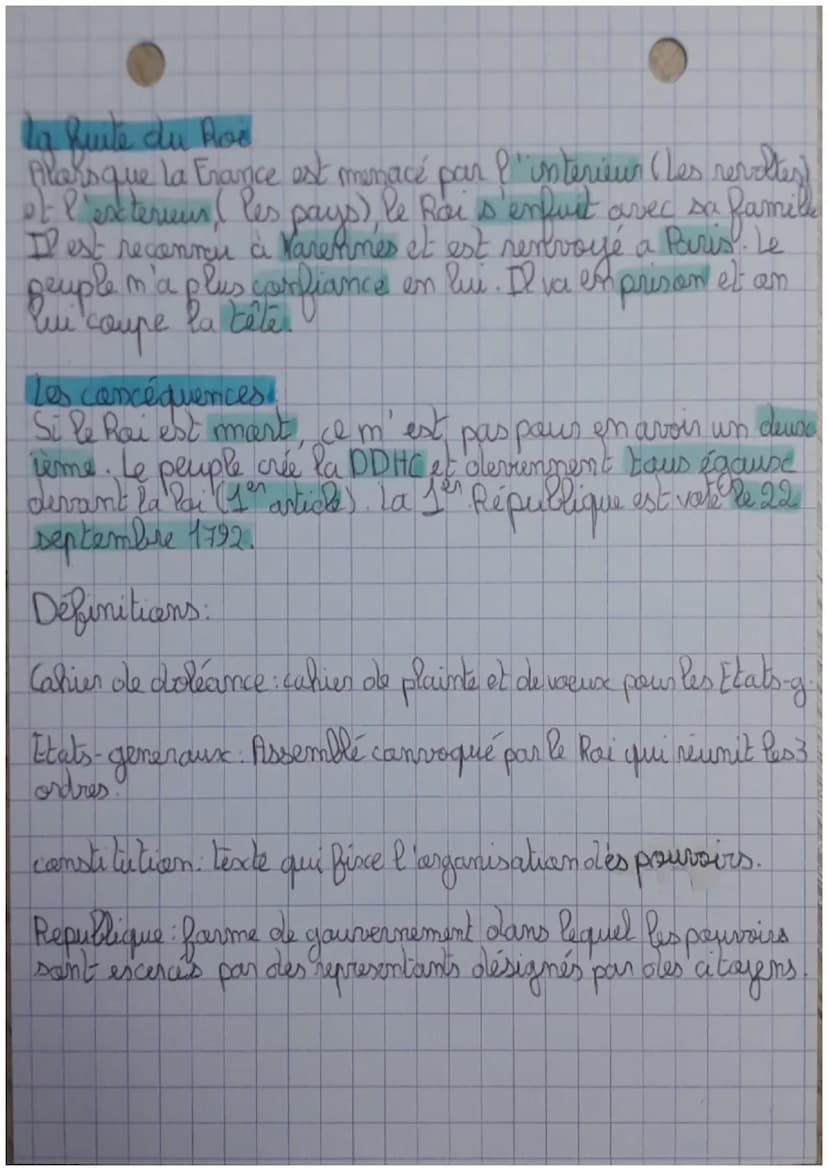 La fuite du Roi
Alorsque la France est menacé par l'interieur (Les revoltes)
et l'exterieur, ( les pays), le Roi s'enfuit avec sa famille
Il est reconnu à Varennes et est rentvoyé a Paris. Le
peuple n'a plus confiance en lui. Il va en prison et on
lui coupe la tête.
Les concéquences.
Si le Roi est mort, ce n'est pas pour en avoir un deux
ième. Le peuple crée la DDHC et deviennent tous égaux
devant la loi (1er article). La 1er République est voté le 22
septembre 1792.
Définitions:
Cahier de doléance : cahier de plainte et de voeux pour les Etats-g.
Etats-generaux : Assemblé convoqué par le Roi qui réunit les 3
ordres.
constitution : texte qui fixe l'organisation des pouvoirs.
Republique : forme de gouvernement dans lequel les pouvoirs
sont excercés par des representants désignés par des citoyens.